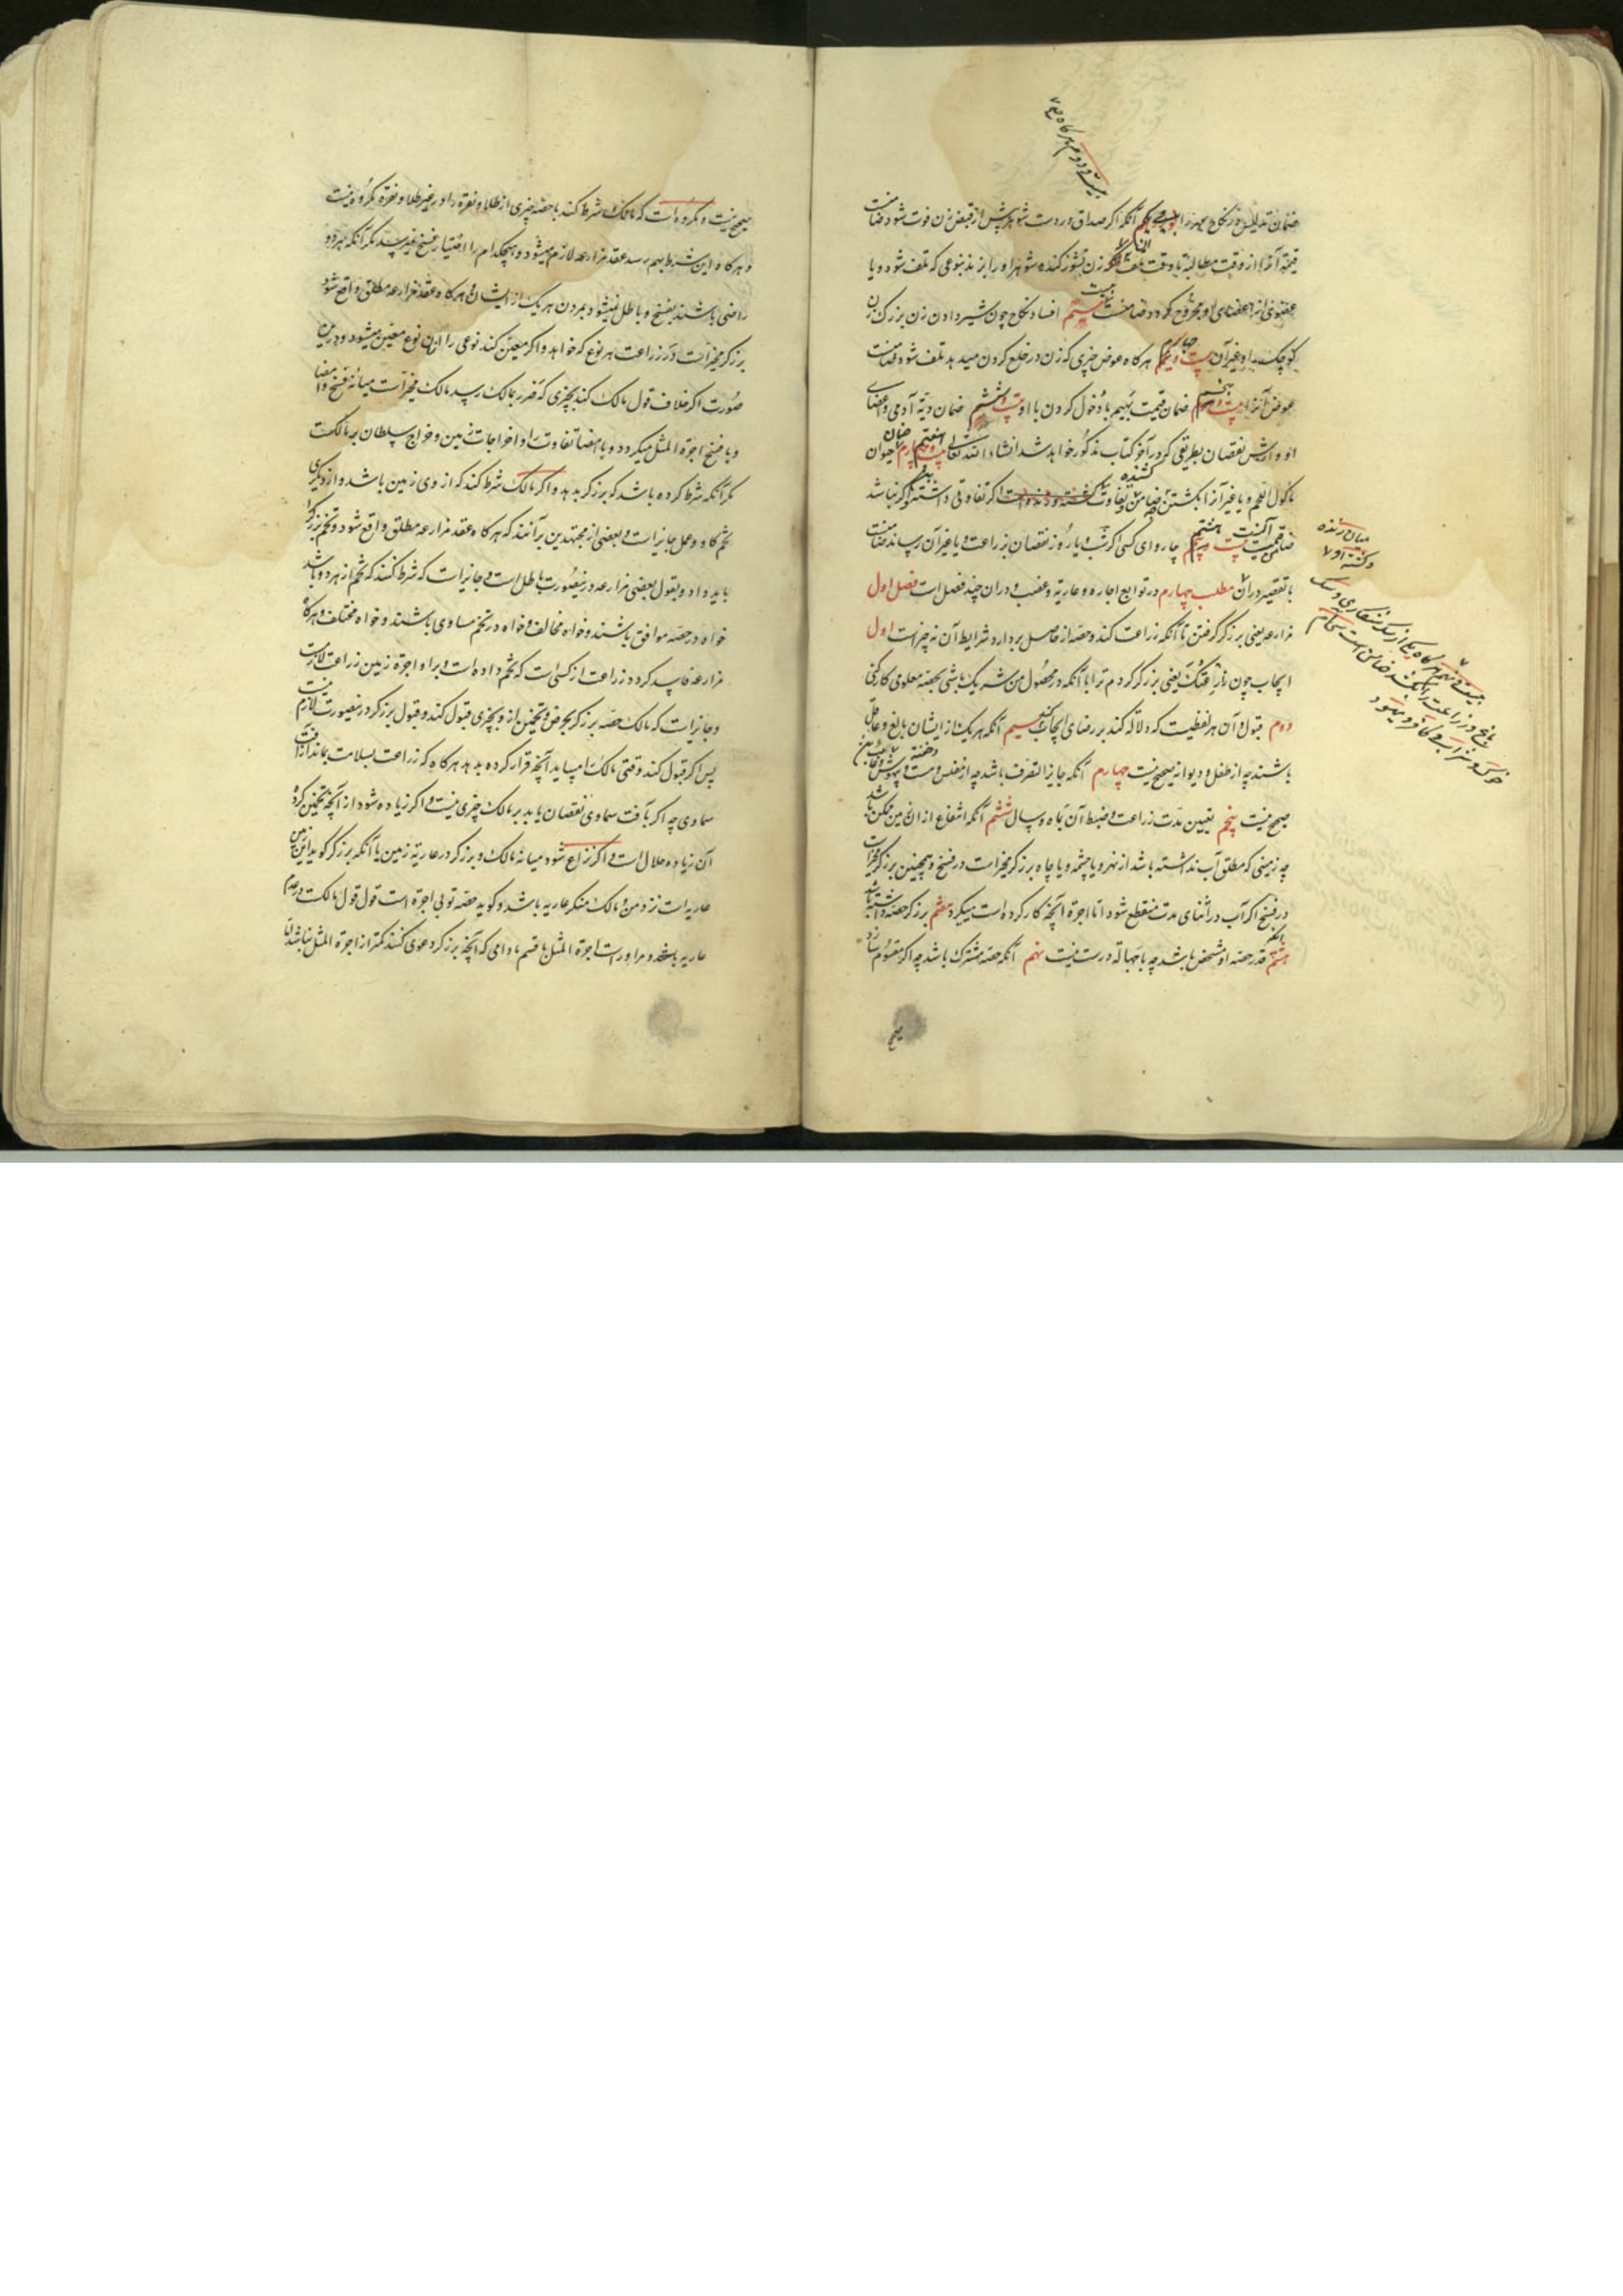 ضمان تدلیس در نکاح مهر را بیست و یکم آنکه اکر صداق در دست شوهر پیش از قبض زن فوت شود ضامنست
قیمة آنرا از وقت مطالبة تا وقت تلف زن نشوز کننده شوهر او را بزند بنوعی که تلف شود و یا
عضوی از اعضای او مجروح کردد ضامنست افساد نکاح چون شیر دادن زن بزرک زن
کوچک را و غیر آن بیست و هرکاه عوض چیزی که زن در خلع کردن میدهد تلف شود ضامنست
عوض آنرا بیست و پنجم ضمان قیمت بهیمه با دخول کردن با او بیست و ششم ضمان دیة آدمی و اعضای
او و ارش نقصان بطریقی که در آخر کتاب مذکور خواهد شد انشاء الله تعالی بیست و هفتم ضمان حیوان
ماکول اللحم و یا غیر آنرا بکشتن ضامن تفاوت کشته و زنده است اکر تفاوتی داشته و اکر نباشد
ضامن قیمت آنست بیست و هشتم چاروای کسی اکر شب و یا روز نقصان بزراعت و یا غیر آن رساند ضامنست
با تقصیر در آن مطلب چهارم در توابع اجاره و عاریة و غصب و در ان چند فصل است فصل اول
مزارعه یعنی برزکر کرفتن تا آنکه زراعت کند و حصه از حاصل بردارد و شرایط آن نه چیز است اول
ایجاب چون زارعتک یعنی برزکر کردم ترا با آنکه در محصول من شریک باشی بحصه معلومی کار کنی
دوم قبول و آن هر لفظیست که دلالة کند بر رضای ایجاب کننده سیم آنکه هر یک از ایشان بالغ و عاقل
باشند چه از طفل و دیوانه صحیح نیست چهارم آنکه جایز التصرف باشد چه از مفلس و مست و بیهوش و خفته
صحیح نیست پنجم تعیین مدت زراعت و ضبط آن بماه و سال ششم آنکه انتفاع از ان زمین ممکن باشد
چه زمینی که مطلق آب نداشته باشد از نهر و یا چشمه و یا چاه برزکر مخیر است در فسخ و همچنین برزکر مخیر است
در فسخ اکر آب در اثنای مدت منقطع شود اما اجرة آنچه کار کرده است میکیرد هفتم برزکر حصه داشته باشد
هشتم آنکه قدر حصه او مشخص باشد چه با جهالة درست نیست نهم آنکه حصه مشترک باشد چه اکر مقسوم سازند
صحیح
بیست و دوم هرکاه
میان زنده
و کشته او
بیست و نهم هرکاه یکی از سک شکاری و سک
باغ و زراعت را بکشد ضامن است
خوک و شراب کافر
صحیح نیست و مکروهست که مالک شرط کند با حصه چیزی از طلا و نقره را و غیر طلا و نقره مکروه نیست
و هرکاه این شرط بهم رسد عقد مزارعه لازم میشود و هیچکدام را اختیار فسخ نمیرسد مکر آنکه هر دو
راضی باشند بفسخ و باطل نمیشود بمردن هر یک از ایشان و هرکاه عقد مزارعه مطلق واقع شود
برزکر مخیر است در زراعت هر نوع که خواهد و اکر معین کند نوعی را آن نوع معین میشود و درین
صورت اکر خلاف قول مالک کند بچیزی که ضرر بمالک رسد مالک مخیر است میانه فسخ و امضا
و با فسخ اجرة المثل میکیرد و با امضا تفاوت را و اخراجات زمین و خراج سلطان بر مالکست
مکر آنکه شرط کرده باشد که برزکر بدهد و اکر مالک شرط کند که از وی زمین باشد و از دیکری
تخم کاو و عمل جایز است و بعضی از مجتهدین برآنند که هرکاه عقد مزارعه مطلق واقع شود تخم برزکر
باید داد و بقول بعضی مزارعه درینصورت باطل است و جایز است که شرط کنند که تخم از هر دو باشد
خواه در حصه موافق باشند و خواه مخالف و خواه در تخم مساوی باشند و خواه مختلف و هرکاه
مزارعه فاسد کردد زراعت از کسی است که تخم داده است و بر او اجرة زمین زراعت لازمست
و جایز است که مالک حصه برزکر بخرص و تخمین ازو بچیزی قبول کند و قبول برزکر درینصورت لازم نیست
پس اکر قبول کند وقتی مالک را میباید آنچه قرار کرده بدهد هرکاه که زراعت بسلامت بماند از آفت
سماوی چه اکر بآفت سماوی نقصان یابد بر مالک چیزی نیست و اکر زیاده شود از آنچه تخمین کرده
آن زیاده حلال است و اکر نزاع شود میانه مالک و برزکر در عاریة زمین یا آنکه برزکر کوید این زمین
عاریه است نزد من و مالک منکر عاریه باشد و کوید حصه تو بی اجرة است قول قول مالکست در عدم
عاریه و مر او راست اجرة المثل با قسم مادامی که آنچه برزکر دعوی کند کمتر از اجرة المثل نباشد